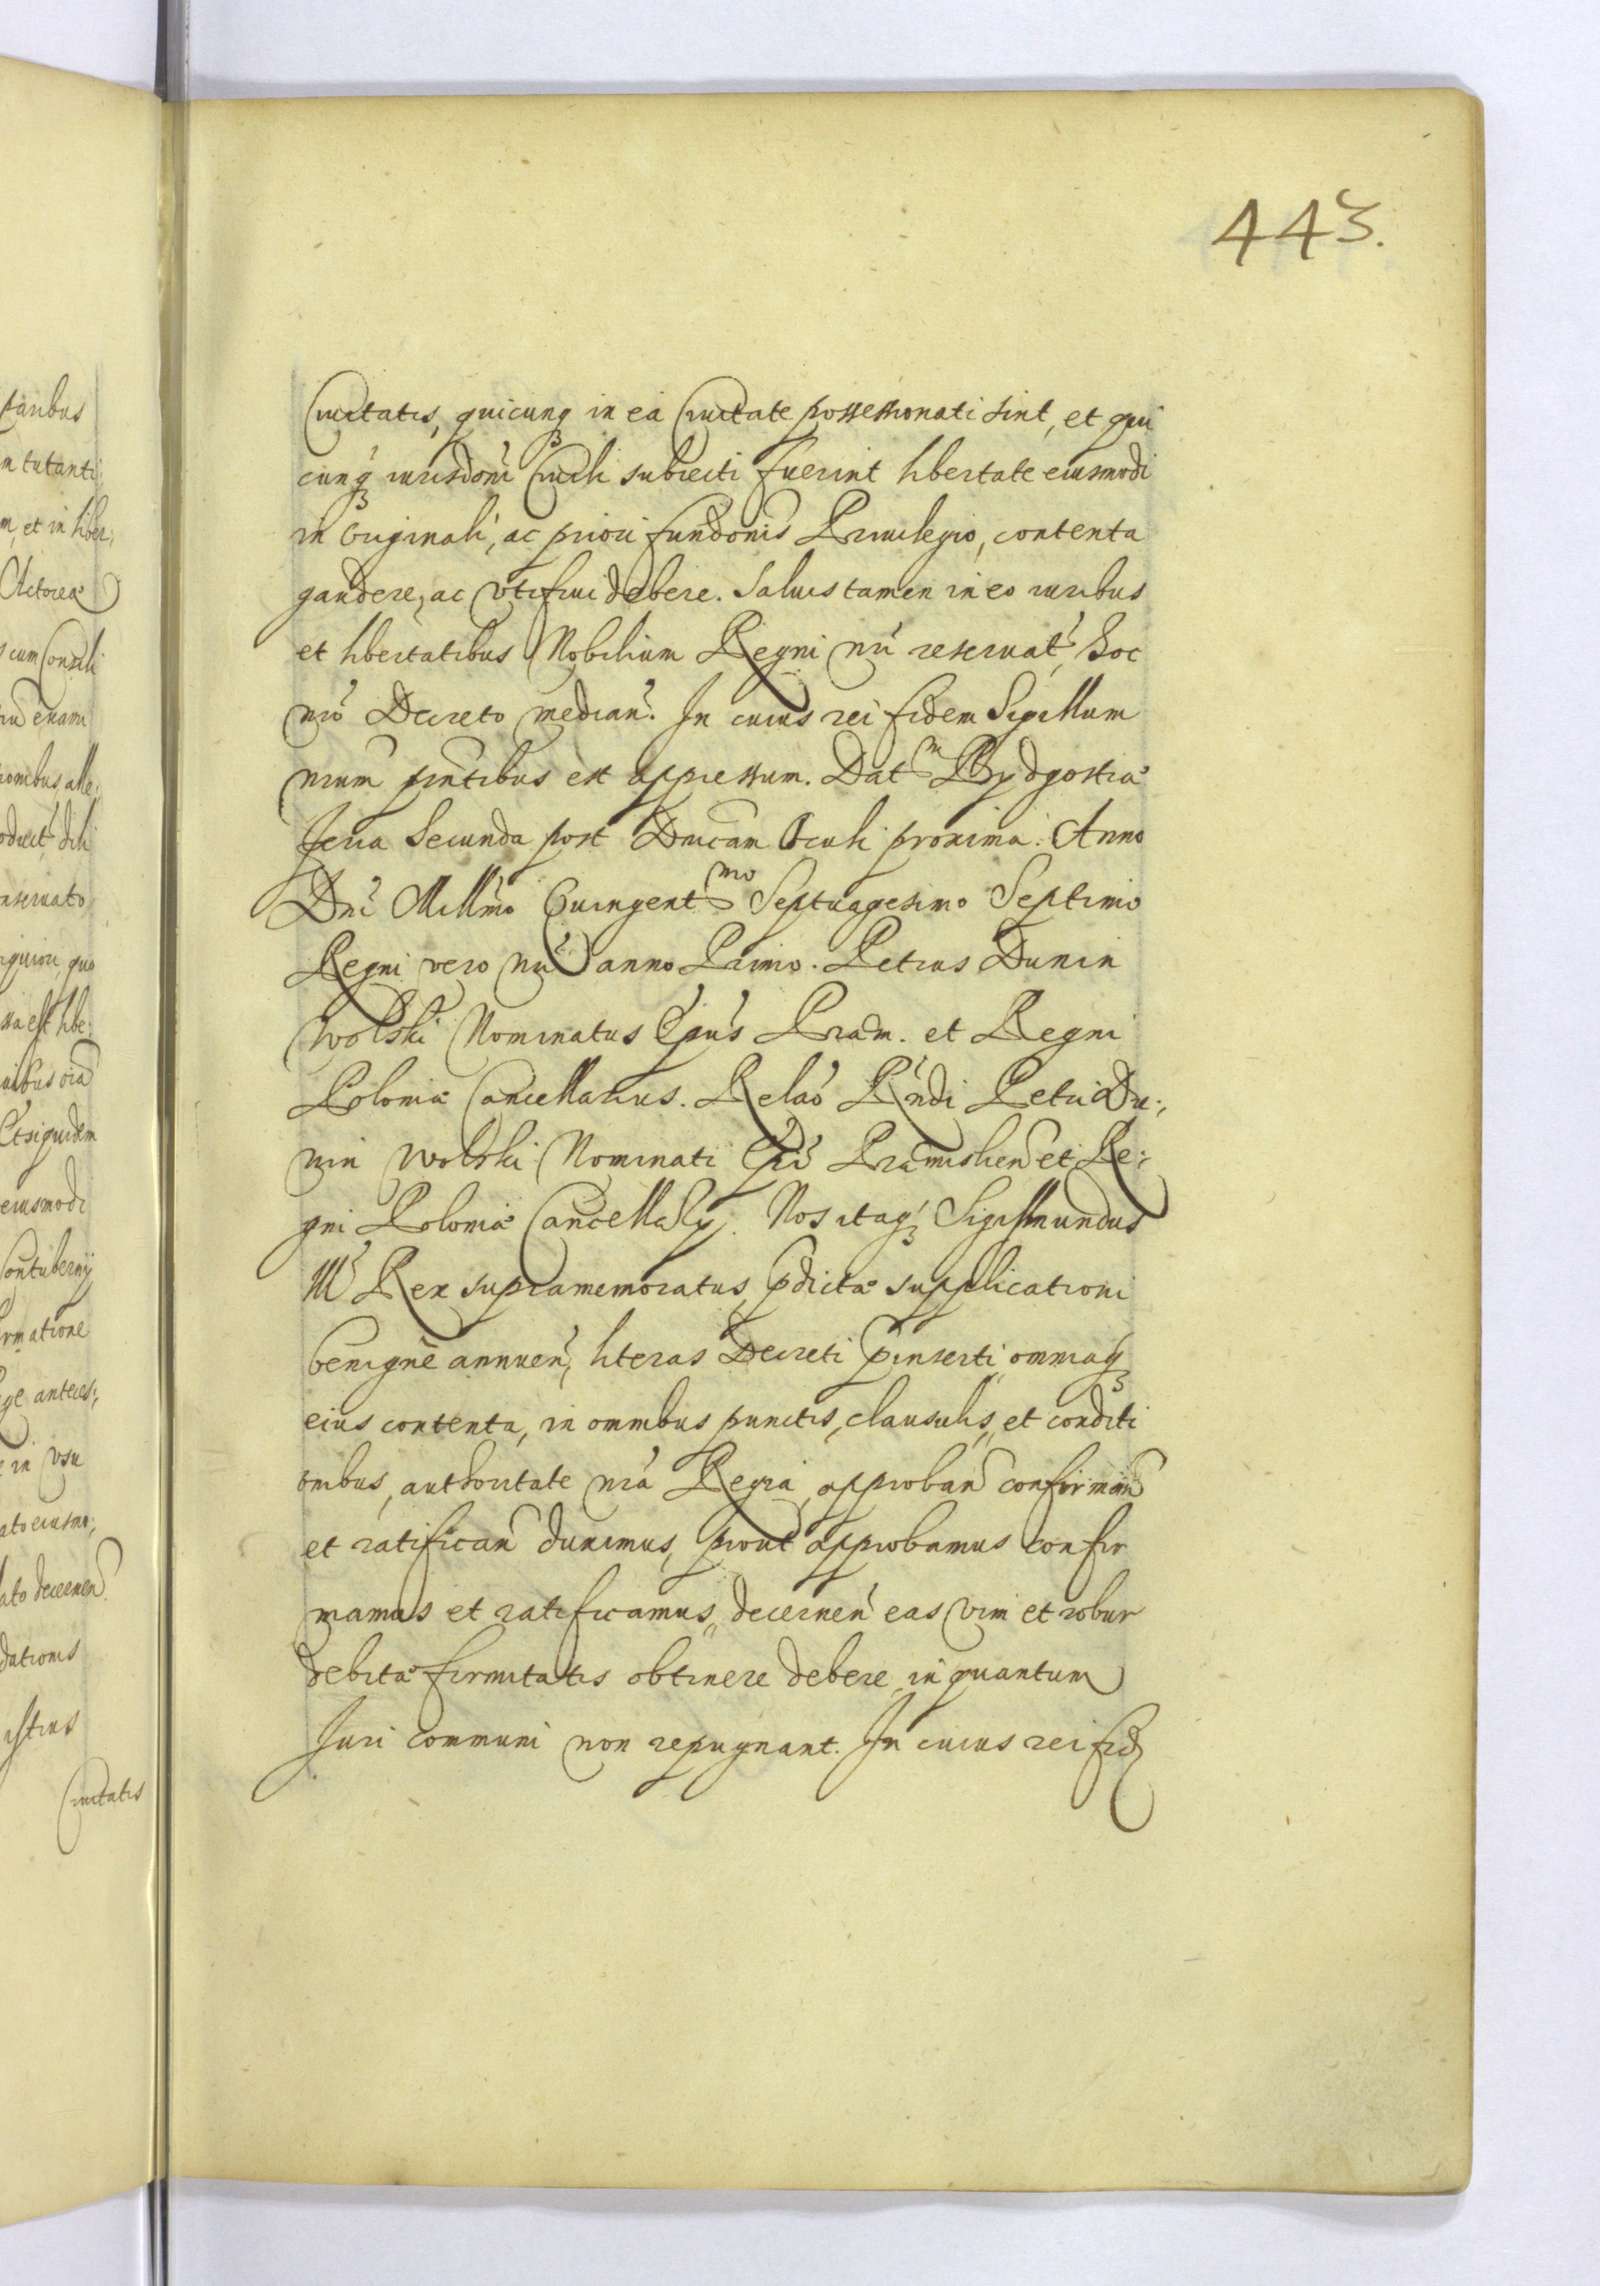 443.
Ciuitatis, quicunq3 in ea Ciuitate possessionati sint, et qui
cunq3 iurisdoni Ciuili subiecti fuerint libertate eiusmodi
in Originali, ac priori fundonis Priuilegio, contenta
gaudere, ac vti frui debere. Saluis tamen in eo iuribus
et libertatibus Nobilium Regni nri reseruat, hoc
nro Decreto median. In cuius rei fidem Sigillum
nrum pntibus est appressum. Datm Bydgostiæ
feria Secunda post Dnicam Oculi proxima. Anno
Dni Millmo Quingentmo Septuagesimo Septimo
Regni vero nri anno Primo. Petrus Dunin
Wolski Nominatus Epus Præm. et Regni
Poloniæ Cancellarius. Relao Rndi Petri Du:,
nin Wolski Nominati Epi Præmislien et Re:
gni Poloniæ Cancellarÿ. Nos itaq3 Sigismundus
III Rex supramemoratus, pdictæ supplicationi
benignè annuen, literas Decreti pinserti, omniaq3
eius contenta, in omnibus punctis, clausulis, et conditi
onibus, authoritate nra Regia, approban confirman
et ratifican duximus, prout approbamus confir
mamus et ratificamus, decernen eas vim et robur
debitæ firmitatis obtinere debere, in quantum
Juri communi non repugnant. In cuius rei fid
ctaribus
n tutanti
m, et in liber:
Actorea
s cum Consili
ombus alle:
nseruato
eiusmodi
Contuberny
rmatione
ge anteces:,
e in vsu
ato eiusmo:,
ato decernen
dationis
istius
Ciuitatis